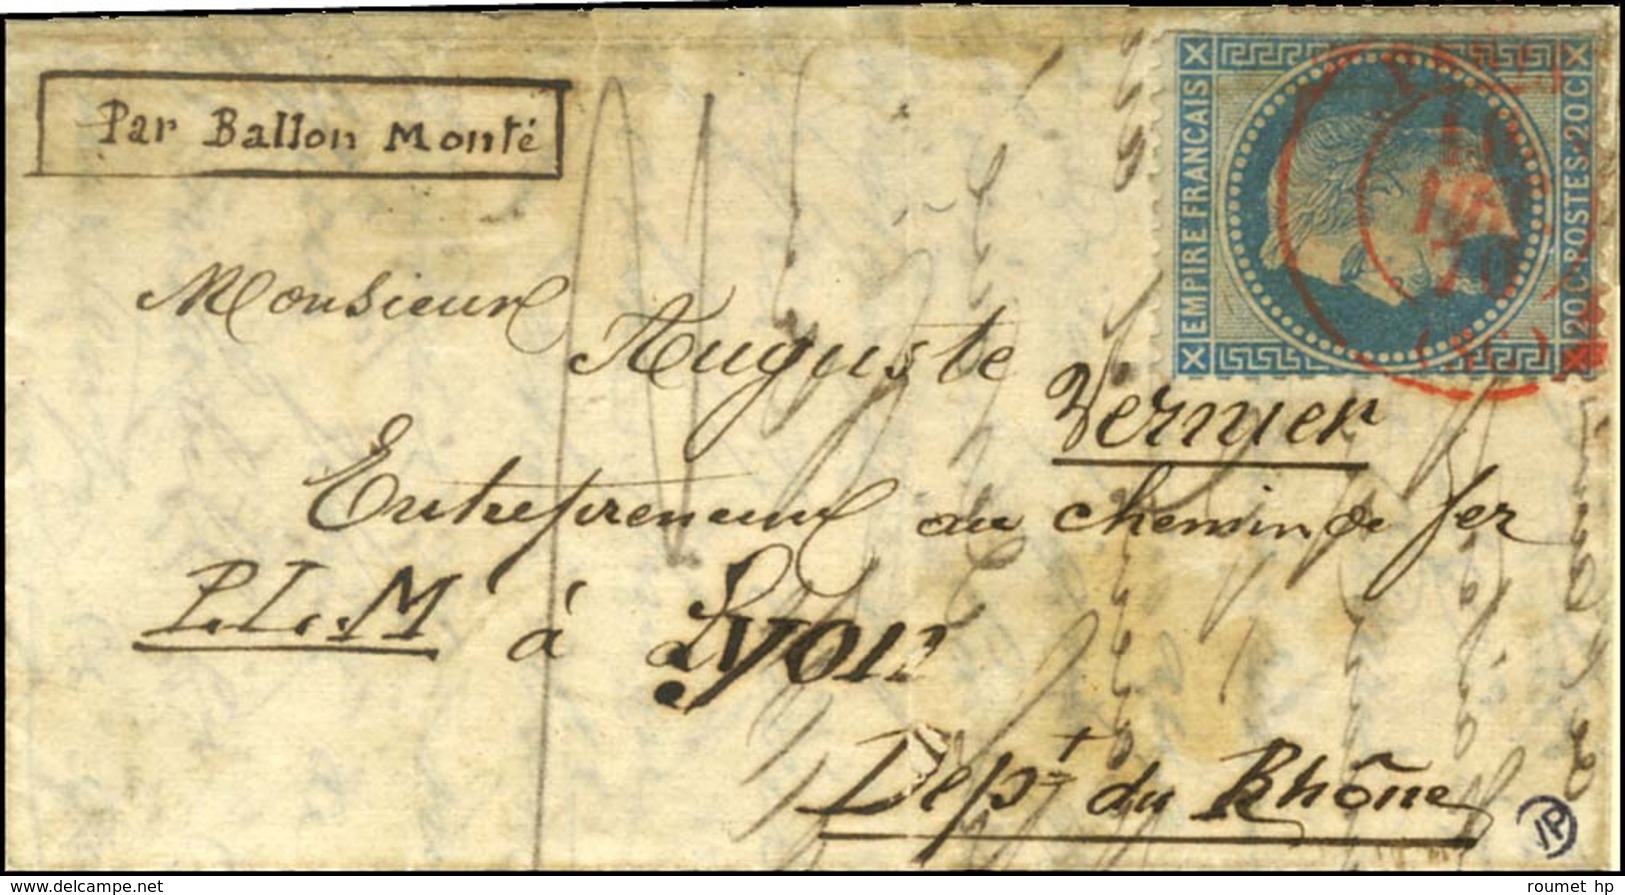 Par Ballon Monté
EMPIRE FRANCAIS
20 C POSTES 20 C
70
Monsieur
Auguste
Vernier
Entrepreneur au chemin de fer
P.L.M à Lyon
Dep.t du Rhône
IP
© roumet hp